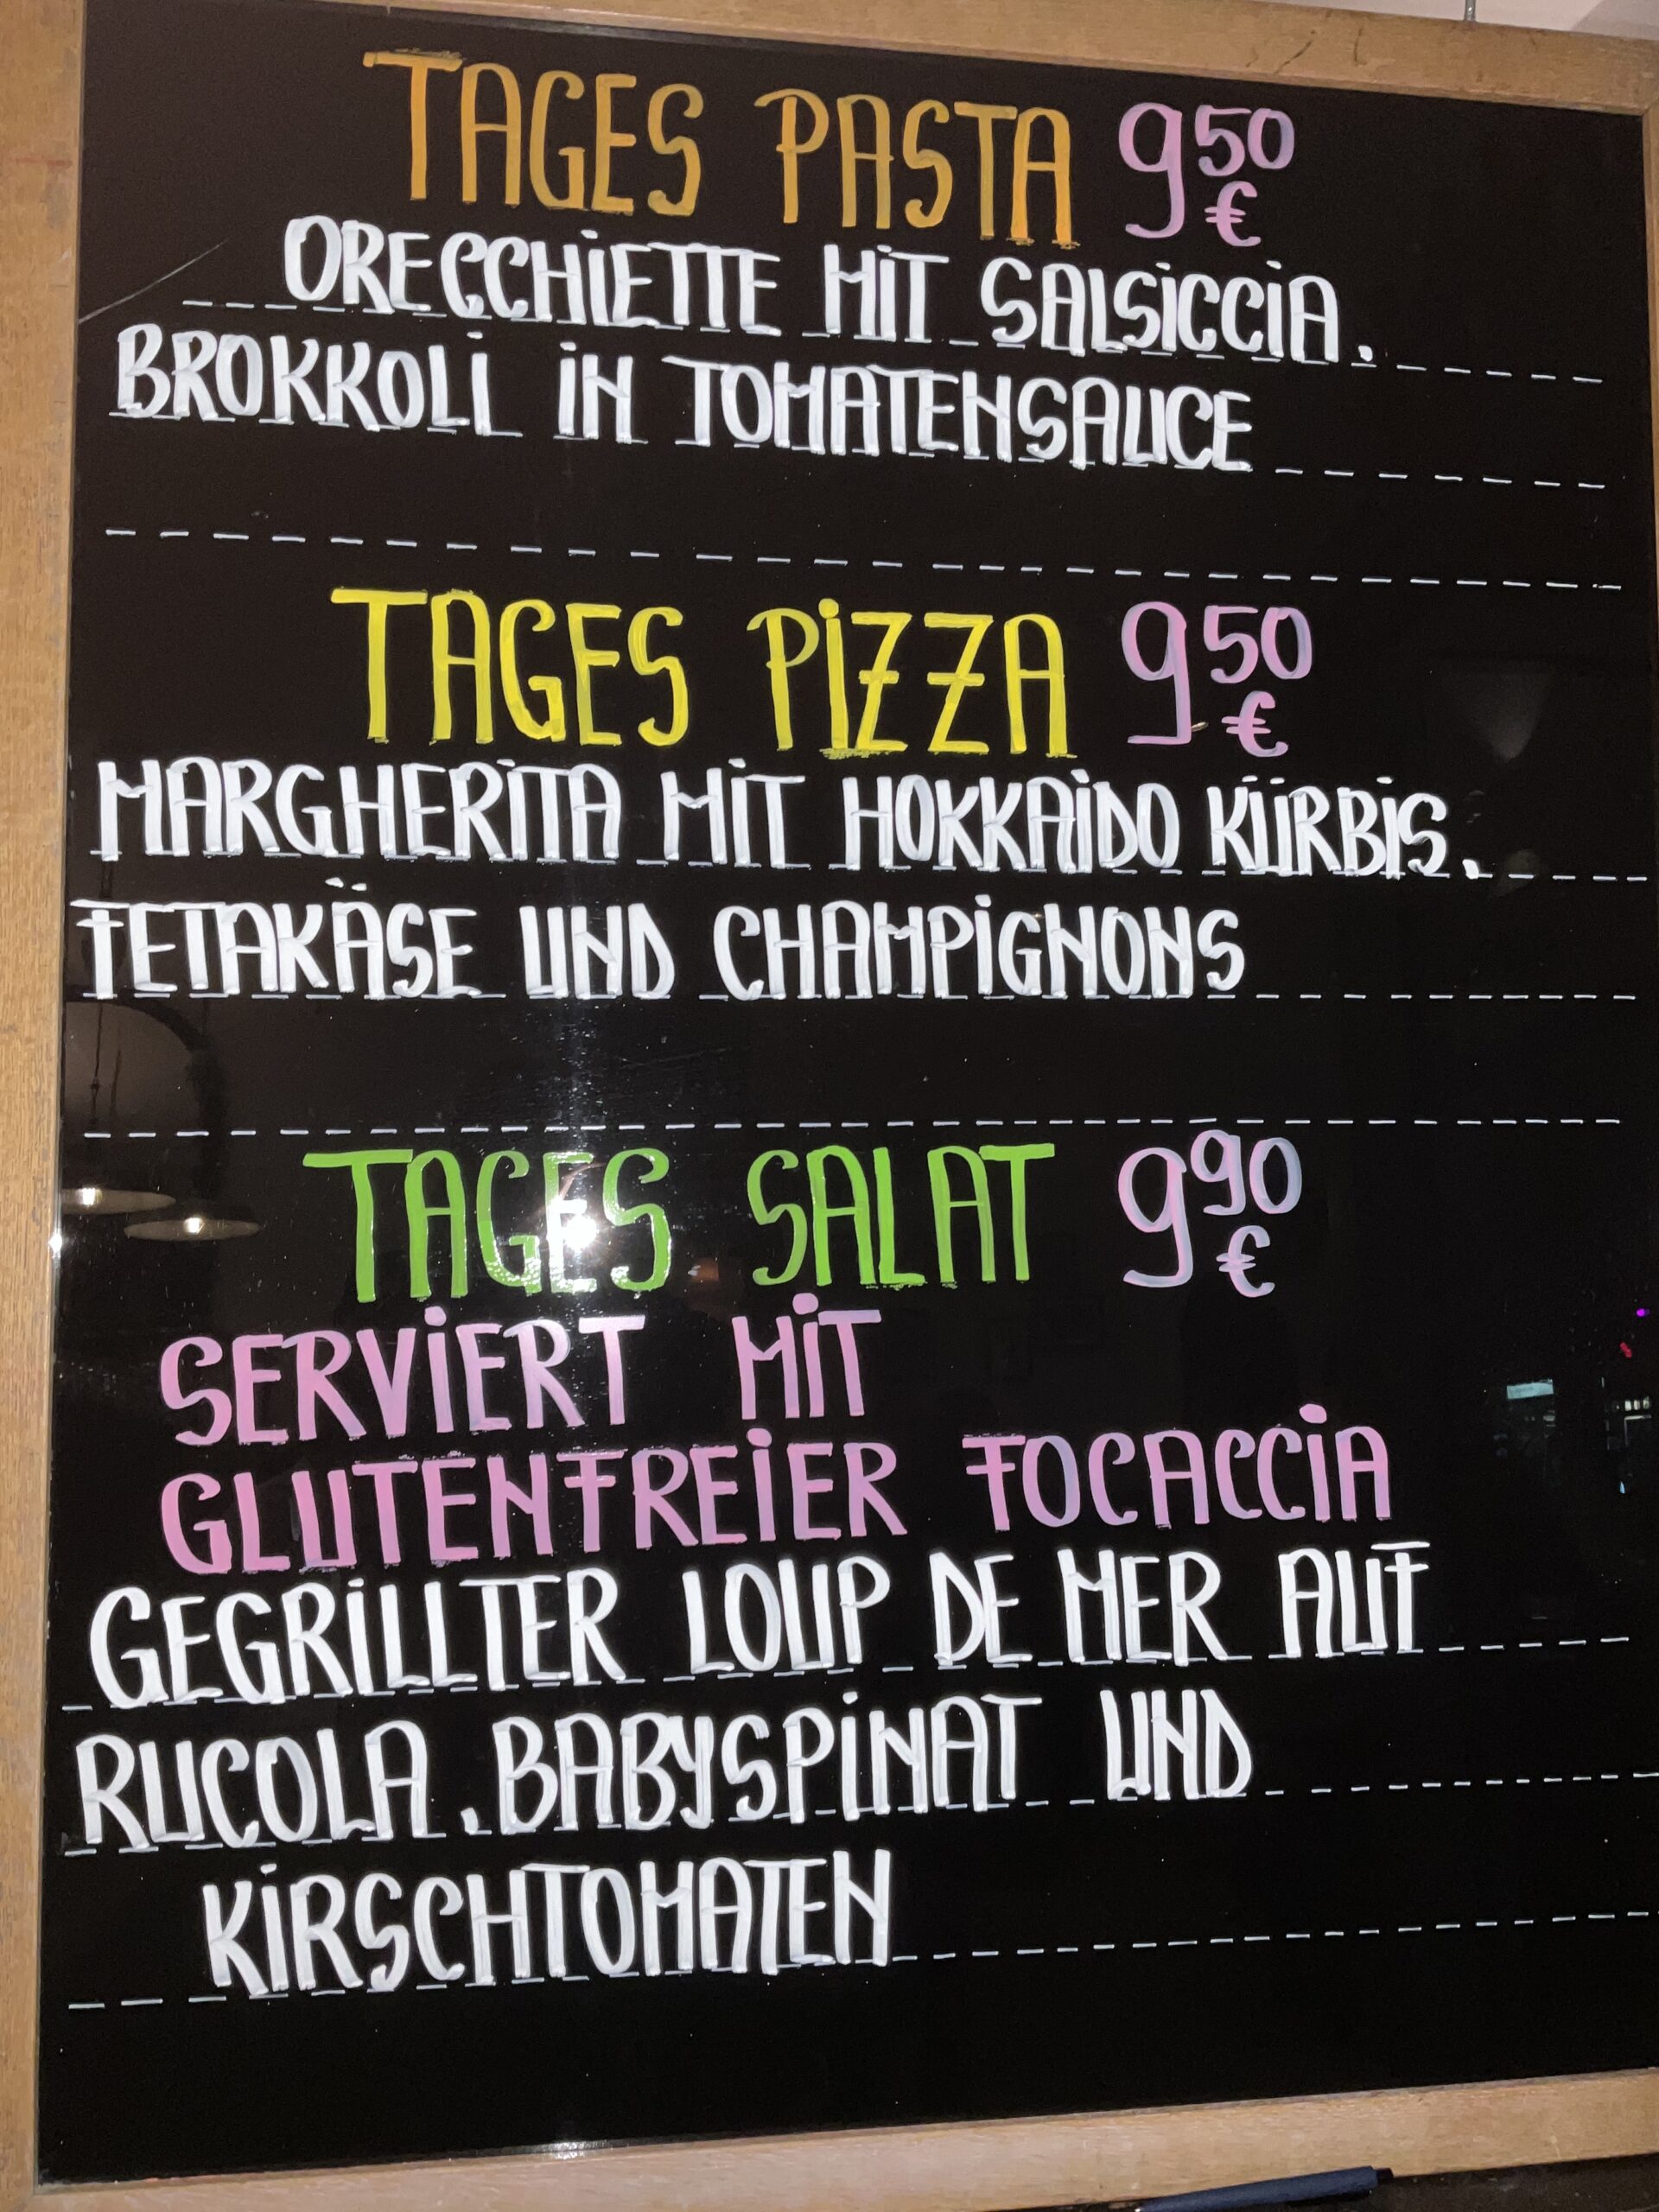 TAGES PASTA 9,50 €
ORECCHIETTE MIT SALSICCIA,
BROKKOLI IN TOMATENSAUCE
TAGES PIZZA 9,50 €
MARGHERITA MIT HOKKAIDO KÜRBIS,
FETAKÄSE UND CHAMPIGNONS
TAGES SALAT 9,90 €
SERVIERT MIT
GLUTENFREIER FOCACCIA
GEGRILLTER LOUP DE MER AUF
RUCOLA, BABYSPINAT UND
KIRSCHTOMATEN